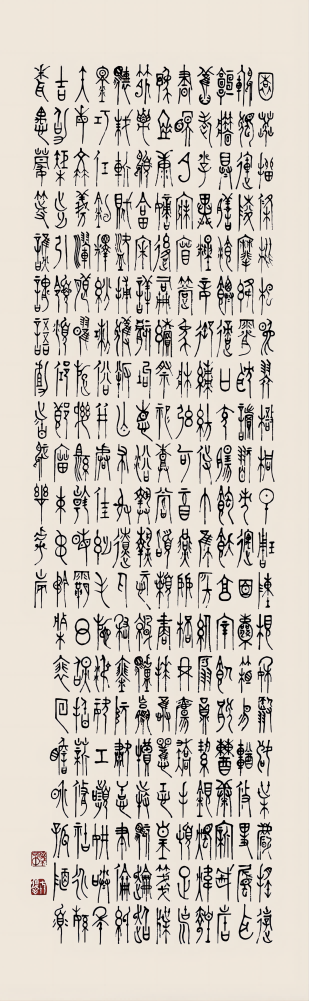 園莽抽條枇杷晚翠梧桐早凋陳根委翳落葉飄颻遊
鵾獨運凌摩絳霄耽讀翫市寓目囊箱易輶攸畏屬耳
垣牆具膳餐飯適口充腸飽飫烹宰飢厭糟糠親戚故
舊老少異糧妾御績紡侍巾帷房紈扇圓潔銀燭煒煌
晝眠夕寐藍筍象床弦歌酒宴接杯舉觴矯手頓足悅
豫且康嫡後嗣續祭祀烝嘗稽顙再拜悚懼恐惶箋牒
簡要顧答審詳骸垢想浴執熱願涼驢騾犢特駭躍超
驤誅斬賊盜捕獲叛亡布射僚丸嵇琴阮嘯恬筆倫紙
鈞巧任釣釋紛利俗並皆佳妙毛施淑姿工顰妍笑年
矢每催曦暉朗曜璇璣懸斡晦魄環照指薪修祜永綏
吉劭矩步引領俯仰廊廟束帶矜莊徘徊瞻眺孤陋寡
聞愚蒙等誚謂語助者焉哉乎也